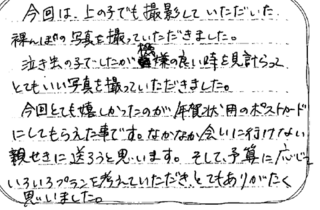 今回は、上の子でも撮影していただいた
裸んぼの写真を撮っていただきました。
泣き出の子でしたが機嫌の良い時を見計らって
とてもいい写真を撮っていただきました。
今回とても嬉しかったのが、年賀状用のポストカード
にしてもらえた事です。なかなか会いに行けない
親せきに送ろうと思います。そして、予算に応じて
いろいろプランを考えていただき、とてもありがたく
思いました。